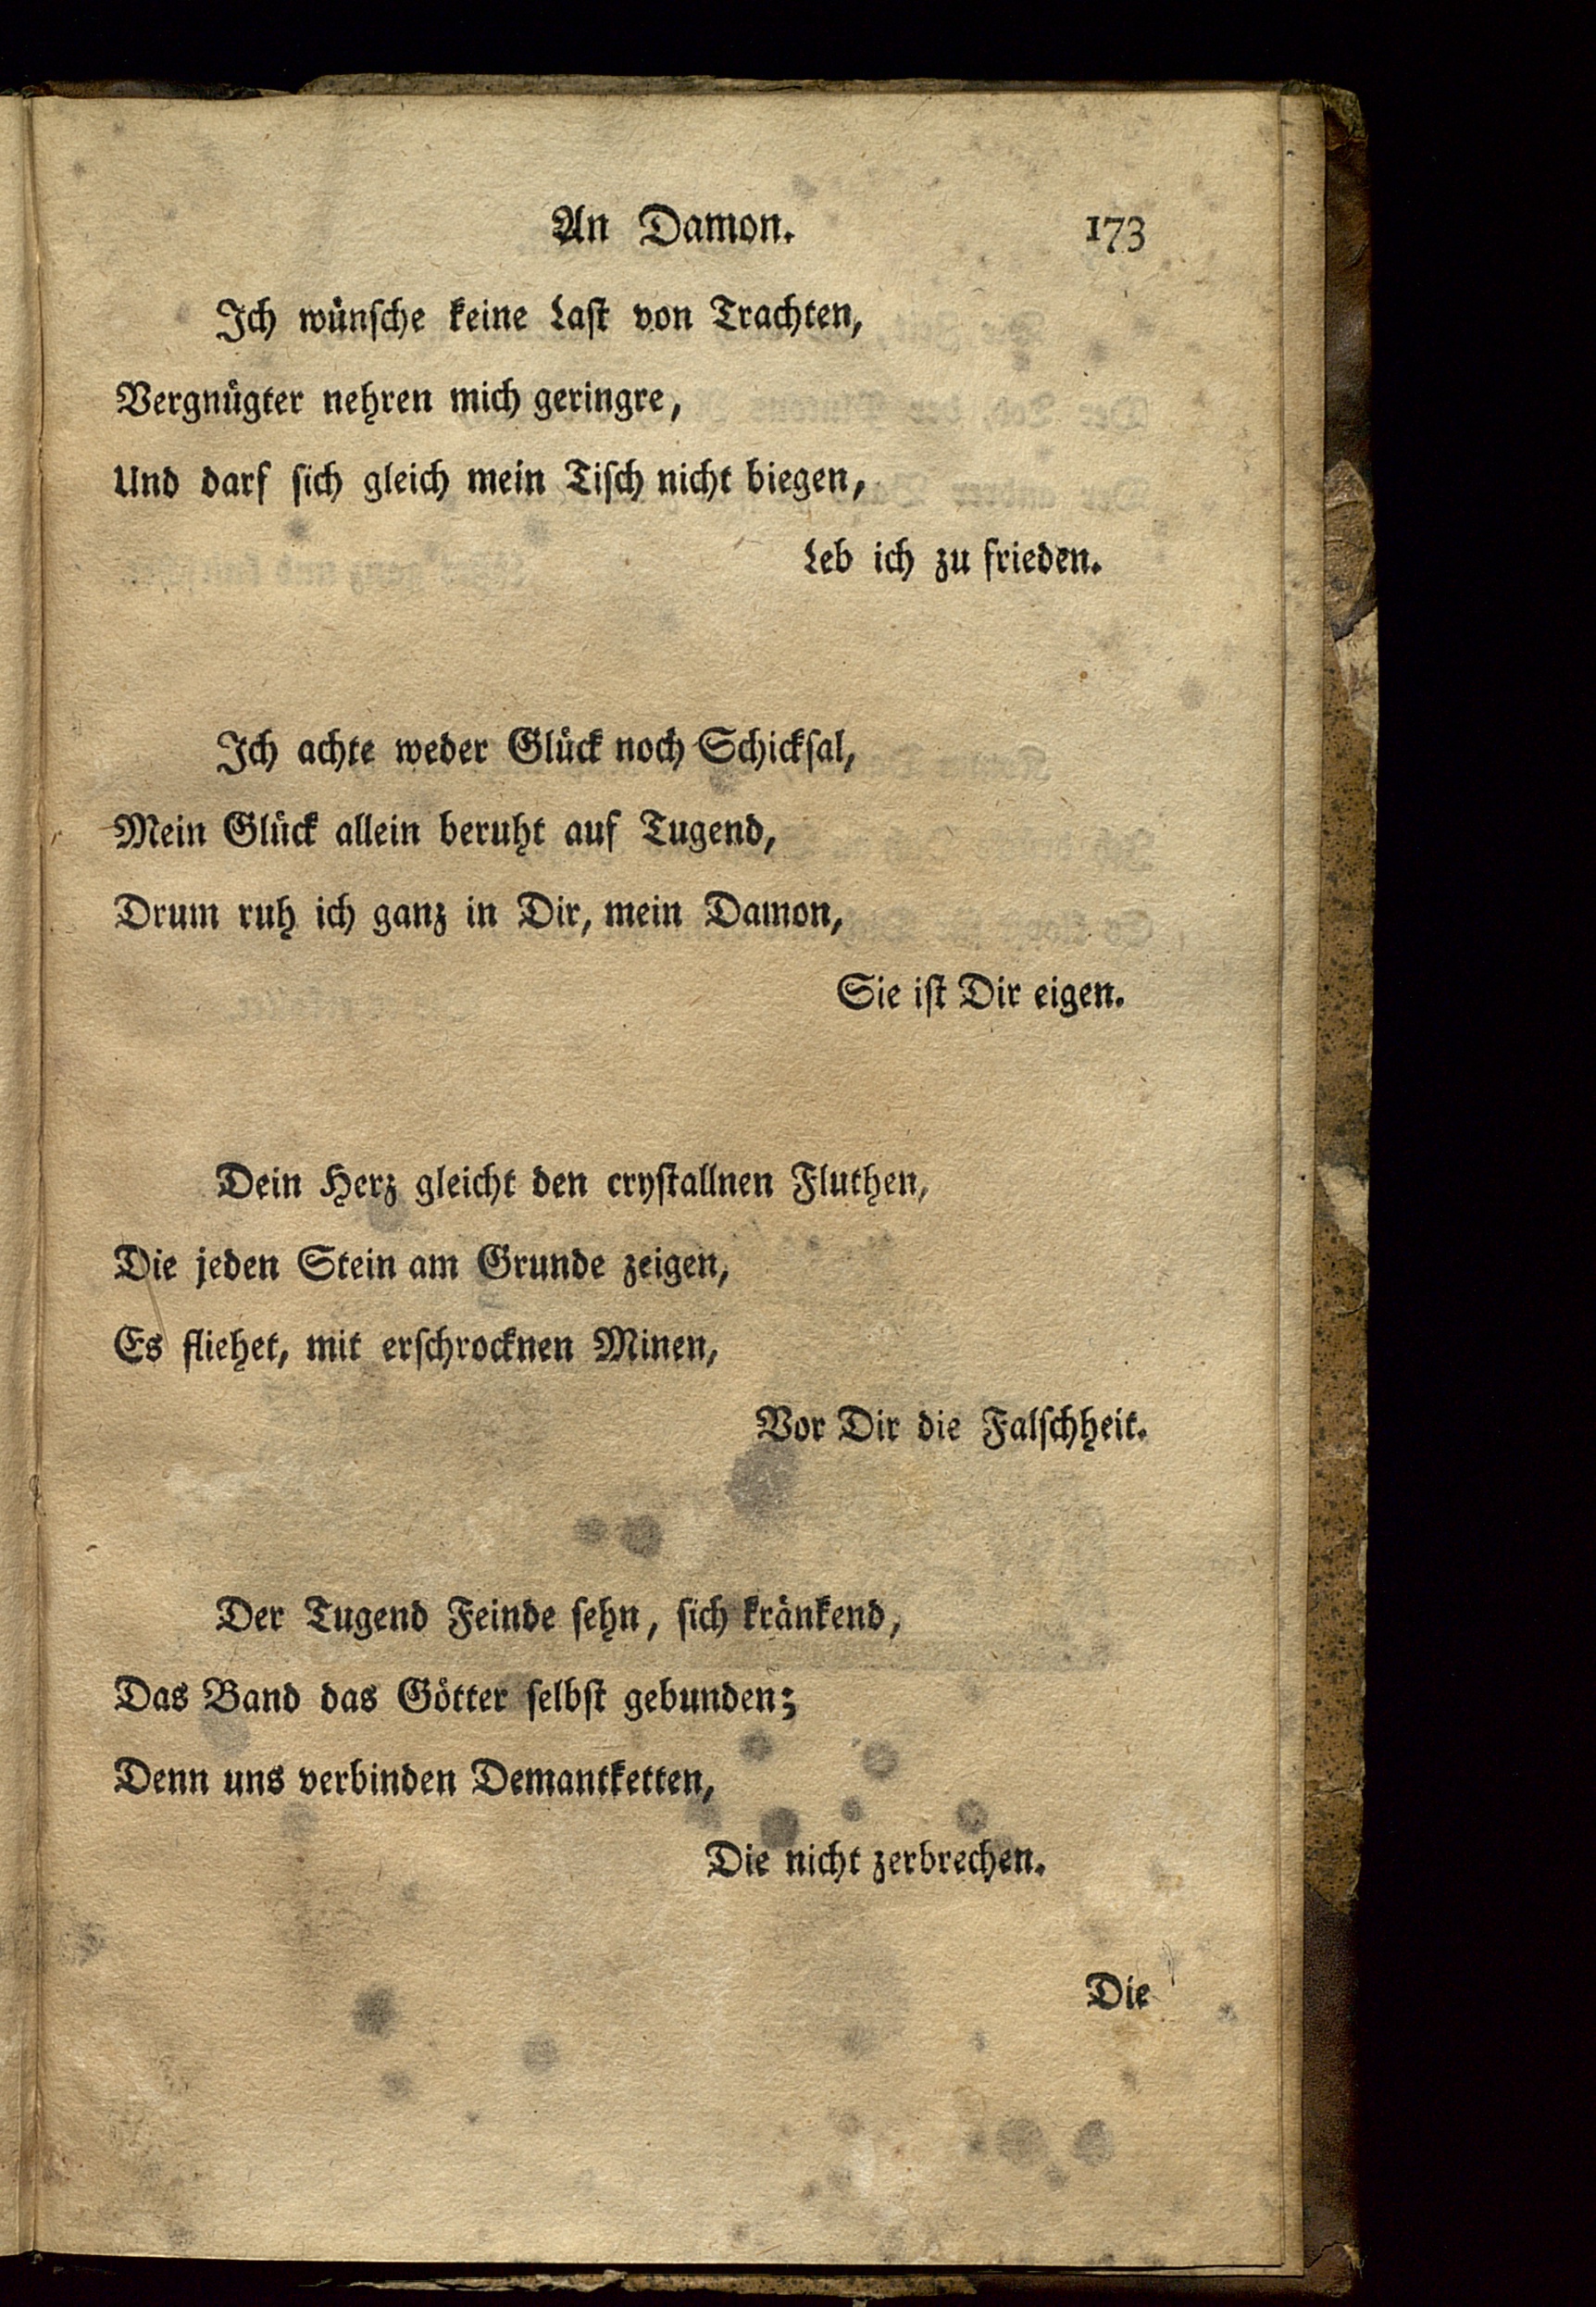 An Damon. 173
Ich wünsche keine Last von Trachten,
Vergnügter nehren mich geringre,
Und darf sich gleich mein Tisch nicht biegen,
Leb ich zu frieden.
Ich achte weder Glück noch Schicksal,
Mein Glück allein beruht auf Tugend,
Drum ruh ich ganz in Dir, mein Damon,
Sie ist Dir eigen.
Dein Herz gleicht den crystallnen Fluthen,
Die jeden Stein am Grunde zeigen,
Es fliehet, mit erschrocknen Minen,
Vor Dir die Falschheit.
Der Tugend Feinde sehn, sich kränkend,
Das Band das Götter selbst gebunden;
Denn uns verbinden Demantketten,
Die nicht zerbrechen.
Die